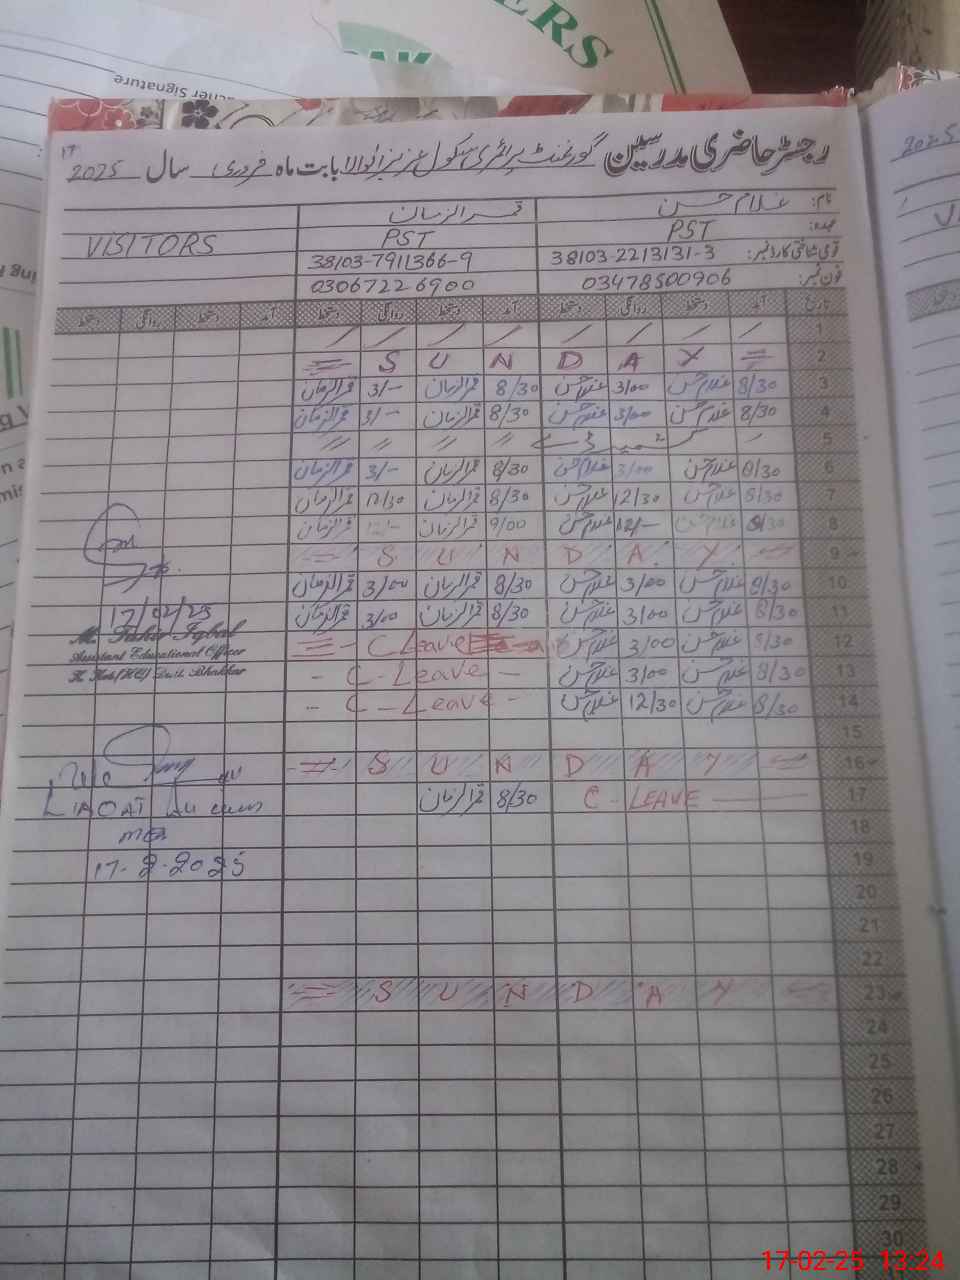 ERS
PAK
cher Signature
17
رجسٹر حاضری مدرسین گورنمنٹ پرائمری سکول عزیز والا بابت ماہ فروری سال 2025
نام: غلام حسن قمر الزمان
عہدہ: PST PST VISITORS
قومی شناختی کارڈ نمبر: 38103-2213131-3 38103-7911366-9
فون نمبر: 03478500906 03067226900
تاریخ آمد دستخط روانگی دستخط آمد دستخط روانگی دستخط آمد دستخط روانگی دستخط
1
2 S U N D A Y
3 8/30 غلام حسن 3/00 غلام حسن 8/30 قمرالزمان 3/- قمرالزمان
4 8/30 غلام حسن 3/00 غلام حسن 8/30 قمرالزمان 3/- قمرالزمان
5 کشمیر ڈے
6 8/30 غلام حسن 3/00 غلام حسن 8/30 قمرالزمان 3/- قمرالزمان
7 8/30 غلام حسن 12/30 غلام حسن 8/30 قمرالزمان 12/30 قمرالزمان
8 8/30 غلام حسن 12/- غلام حسن 9/00 قمرالزمان 12/- قمرالزمان
9 S U N D A Y
10 8/30 غلام حسن 3/00 غلام حسن 8/30 قمرالزمان 3/00 قمرالزمان
11 8/30 غلام حسن 3/00 غلام حسن 8/30 قمرالزمان 3/00 قمرالزمان
17/02/25
12 8/30 غلام حسن 3/00 غلام حسن C Leave
Assistant Educational Officer
13 8/30 غلام حسن 3/00 غلام حسن - C - Leave -
Bhakkar
14 8/30 غلام حسن 12/30 غلام حسن - C - Leave -
15
16 S U N D A Y
17 C - LEAVE 8/30 قمرالزمان
LIAQAT
18
MEA
19
17-2-2025
20
21
22
23 S U N D A Y
24
25
26
27
28
29
30
2025
17-02-25 13:24